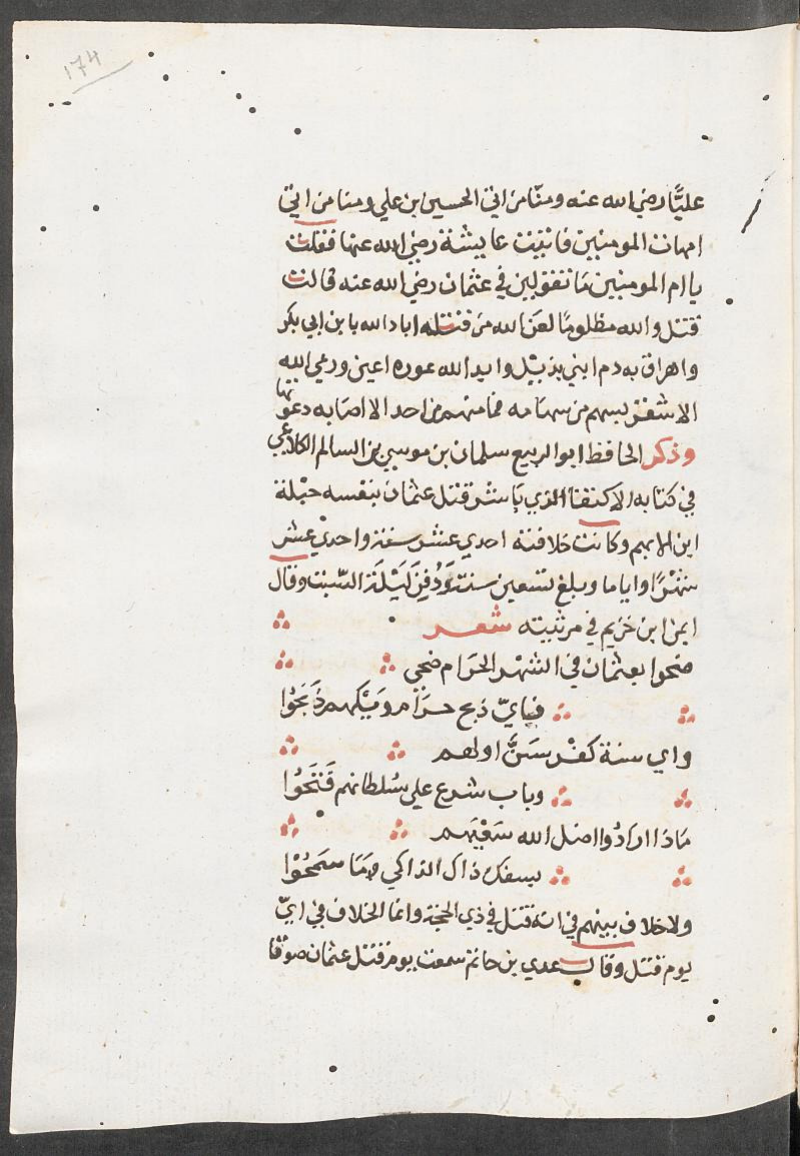 174
عليًّا رضي الله عنه ومنّا من اتى الحسين ابن علي ومنا من اتي
امهات المومنين فاتيت عايشة رضي الله عنها فقلت
يا ام المومنين ما تقولين في عثمان رضي الله عنه قالت
قتل والله مظلومًا لعن الله من قتله اباد الله با بن ابي بكر
واهراق به دم ابني بذبيل وابد الله عوره اعين ورمي الله
الاشتر بسهم من سهامه فما منهم من احد الا اصابه دعوتها
وذكر الحافظ ابو الربيع سلمان بن موسي بن السالم الكلاعي
في كتابه الاكتفا الذي باشر قتل عثمان بنفسه جبلة
ابن الايهم وكانت خلافته احدي عشر سنة واحدي عشر
شهرًا واياما وبلغ تسعين سنت ودُفن لَيْلَة السّبت وقال
ايمن ابن خزيم في مرثيته شعر
ضحوا بعثمان في الشهر الحرام ضحى
فباي ذبح حرام ويلهم ذَبَحُوا
واي سنة كفر سَنَّ اولهم
وباب شرع علي سُلطانهم فَتَحُوا
مَاذا ارادُوا اضل الله سَعْيَهم
بسفك ذاك الذاكي ومَا سَمَحُوْا
ولا خلاف بينهم في انه قتل في ذي الحجة وانما الخلاف في ايّ
يوم قتل وقال عدي بن حاتم سمعت يوم قتل عثمان صوتا